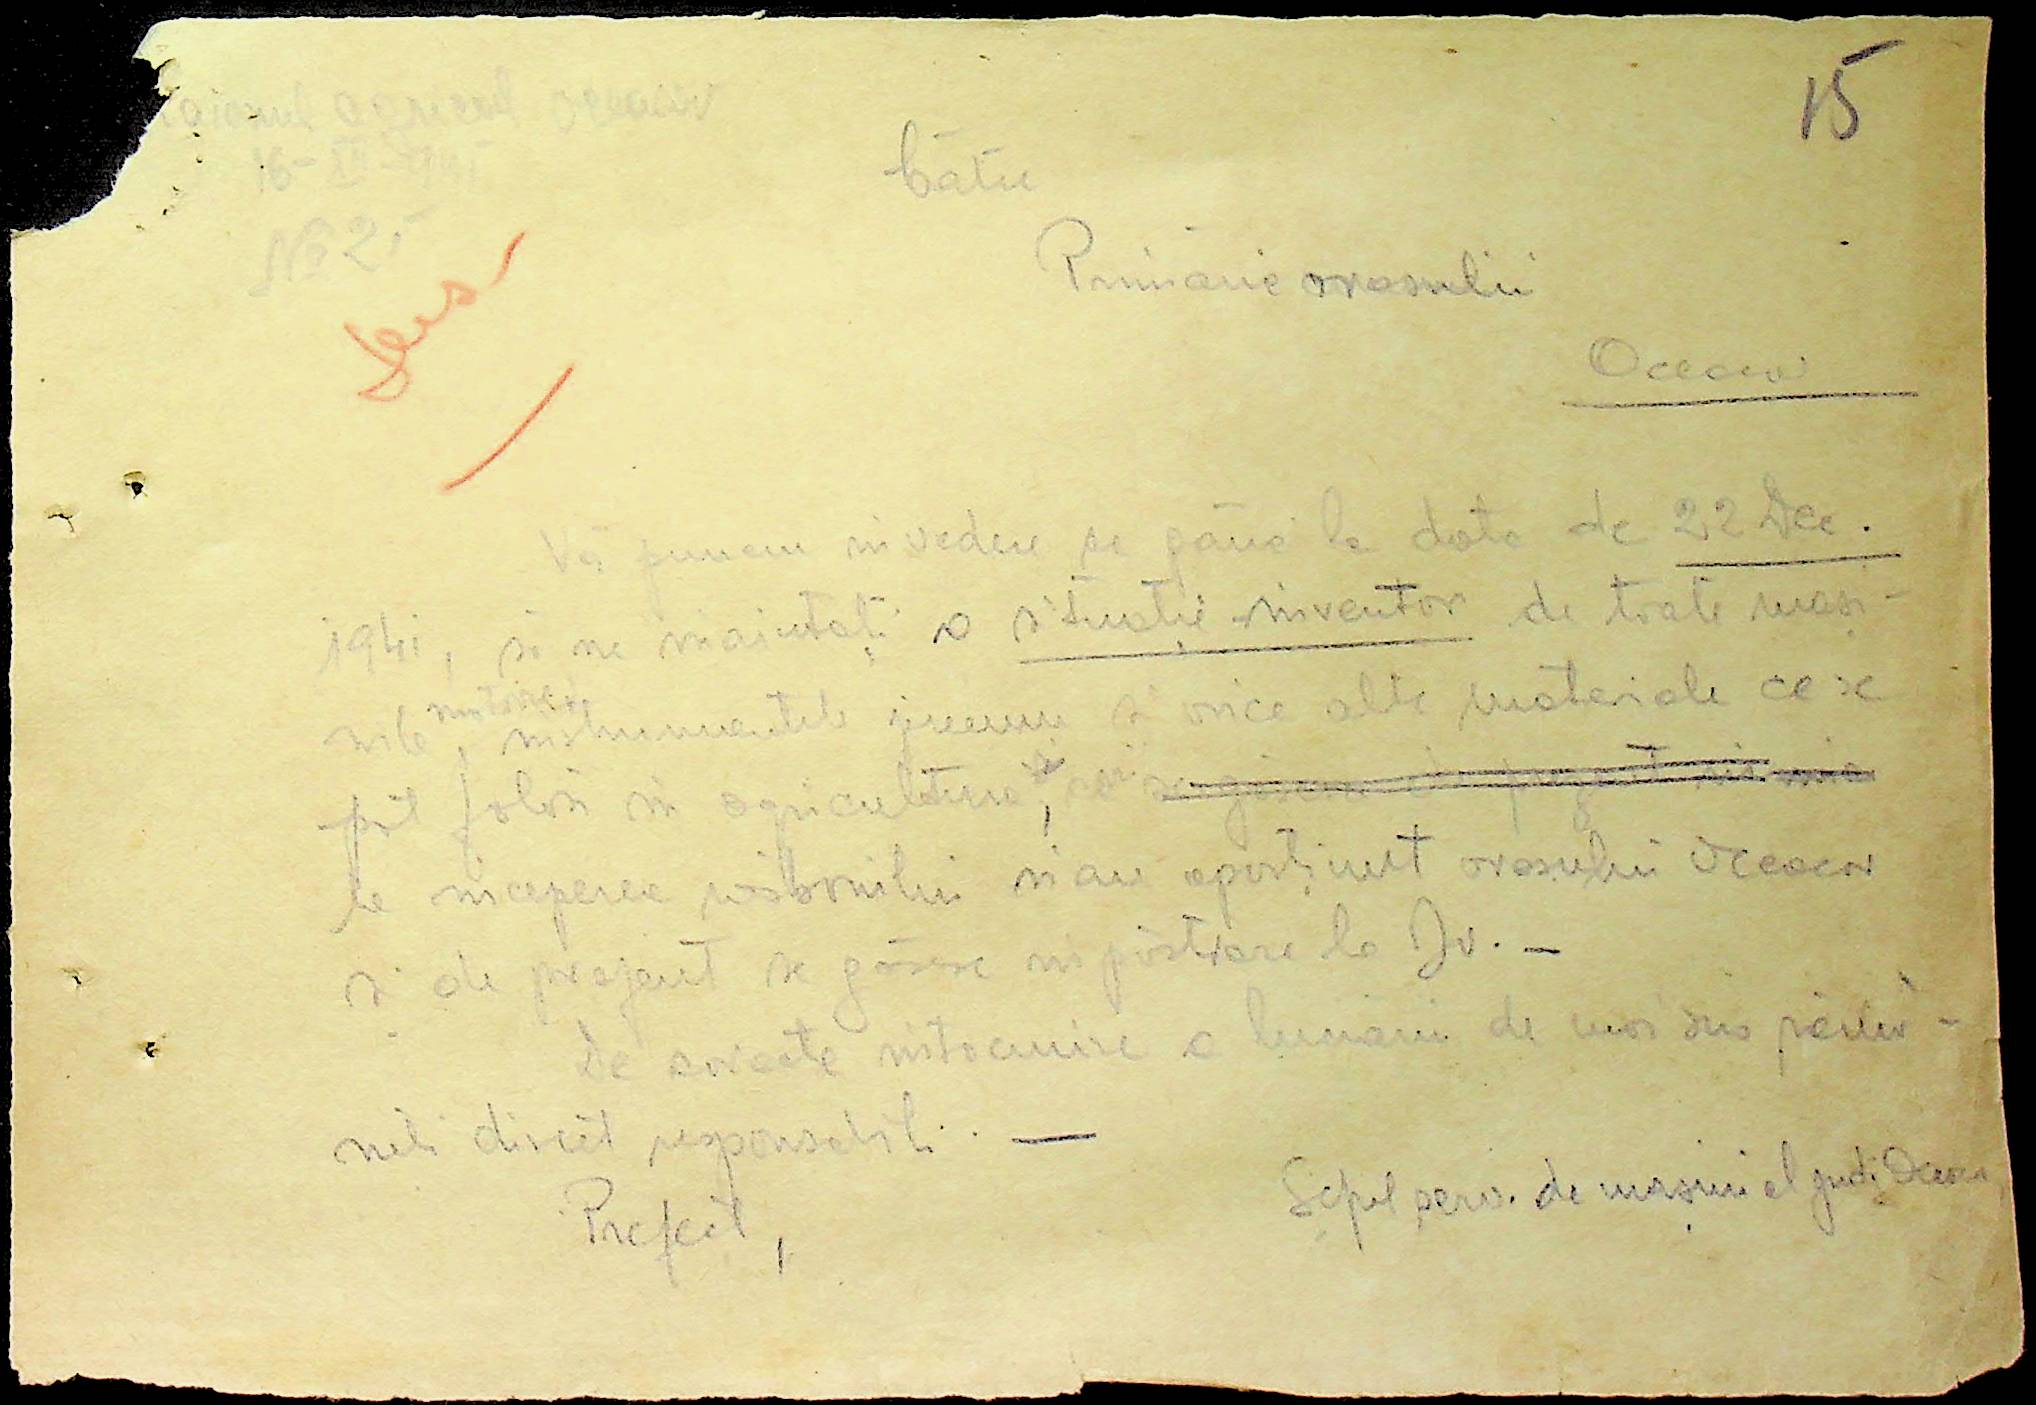 15
Raionul agricol Oceacov
16-XII-1941
№ 2.
Către
Primăria orasului
Oceacov
Vă punem in vedere ca pănă la data de 22 Dec.
1941, să ne inaintați o situație inventor de toate mași-
nile, motoare, instrumentele precum și orice alte materiale ce se
pot folosi in agricultura, și
la inceperea răsboiului si au aparținut orasului Oceacov
și de prezent se găsesc in păstrare la Dv. —
De corecta intocmire a lucrării de mai sus
direct responsabili. —
Prefect,
Șeful serv. de mașini al jud. Oceacov